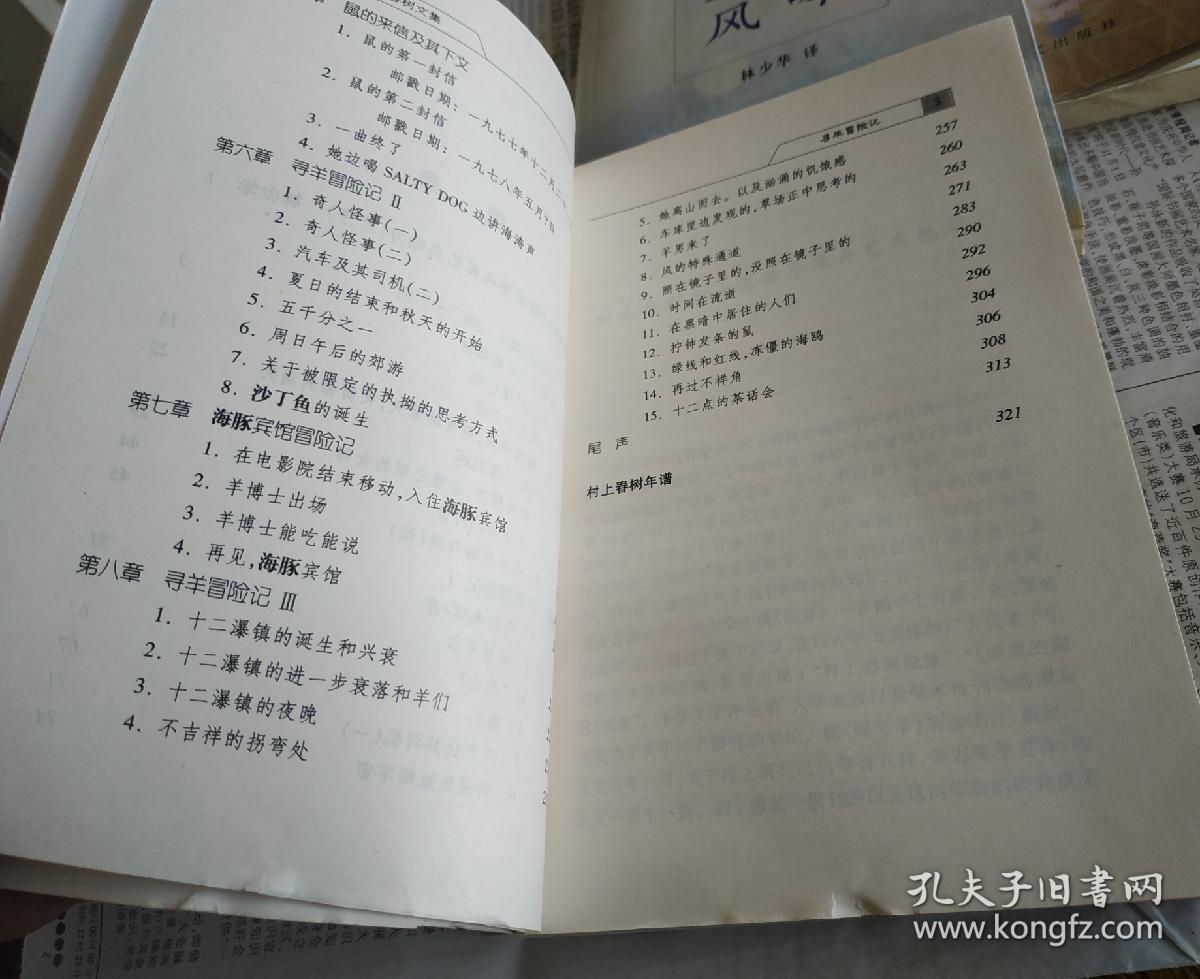 树文集
鼠的来信及其下文
1. 鼠的第一封信
邮戳日期：一九七七年十二月二
2. 鼠的第二封信
邮戳日期：一九七八年五月?日
3. 一曲终了
4. 她边喝 SALTY DOG 边讲海涛声
第六章 寻羊冒险记 Ⅱ
1. 奇人怪事(一)
2. 奇人怪事(二)
3. 汽车及其司机(二)
4. 夏日的结束和秋天的开始
5. 五千分之一
6. 周日午后的郊游
7. 关于被限定的执拗的思考方式
8. 沙丁鱼的诞生
第七章 海豚宾馆冒险记
1. 在电影院结束移动,入住海豚宾馆
2. 羊博士出场
3. 羊博士能吃能说
4. 再见,海豚宾馆
第八章 寻羊冒险记 Ⅲ
1. 十二瀑镇的诞生和兴衰
2. 十二瀑镇的进一步衰落和羊们
3. 十二瀑镇的夜晚
4. 不吉祥的拐弯处
寻羊冒险记 3
5. 她离山而去。以及汹涌的饥饿感 257
6. 车库里边发现的,草场正中思考的 260
7. 羊男来了 263
8. 风的特殊通道 271
9. 照在镜子里的,没照在镜子里的 283
10. 时间在流逝 290
11. 在黑暗中居住的人们 292
12. 拧钟发条的鼠 296
13. 绿线和红线,冻僵的海鸥 304
14. 再过不祥角 306
15. 十二点的茶话会 308
313
尾声 321
村上春树年谱
风
林少华 译
出版社
孔夫子旧书网
www.kongfz.com